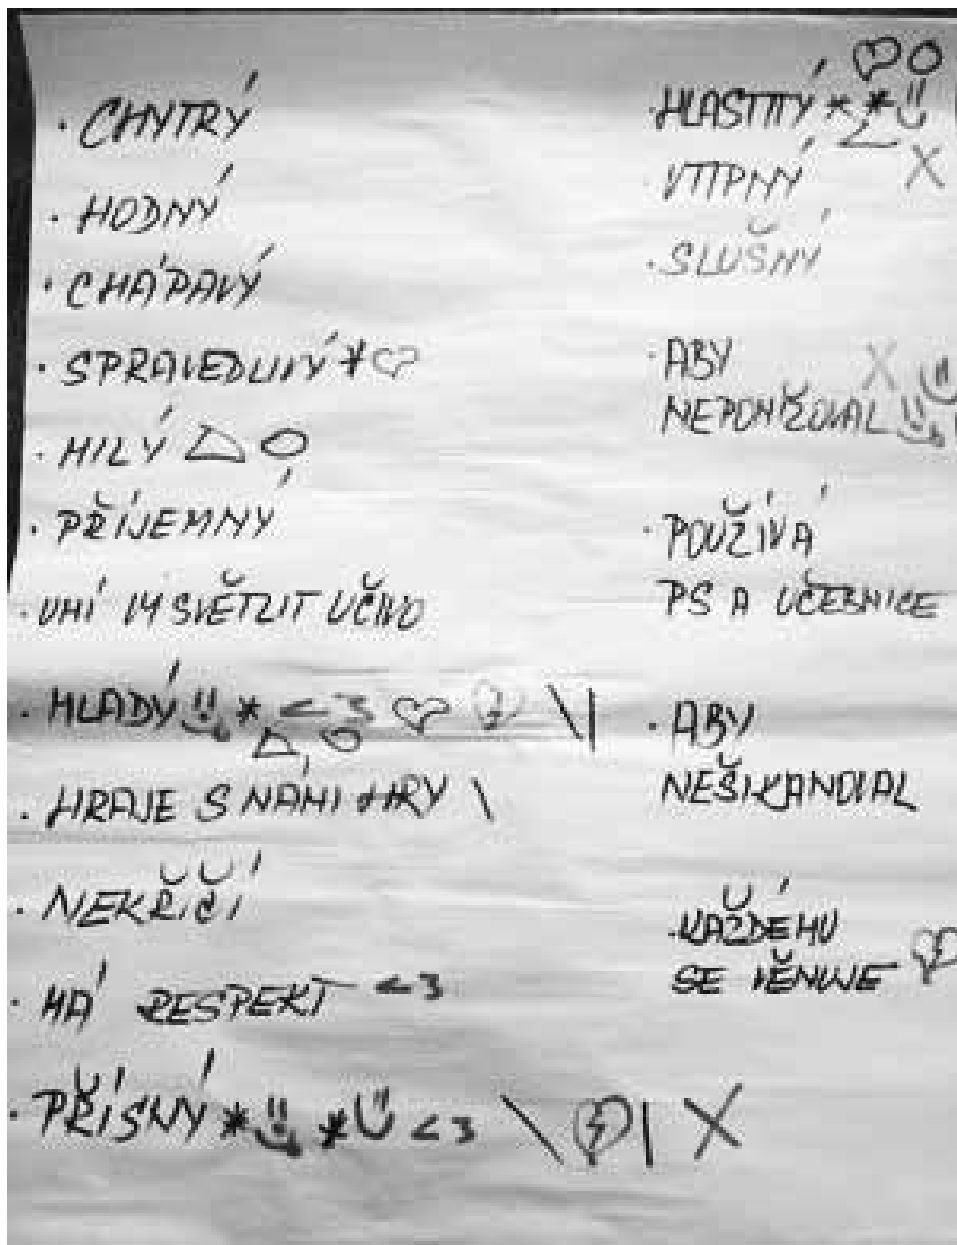 · CHYTRÝ
· HODNÝ
· CHÁPAVÝ
· SPRAVEDLIVÝ * ♡
· MILÝ
· PŘÍJEMNÝ
· UMÍ VYSVĚTLIT UČIVO
· MLADÝ * <3 ♡ \ |
· HRAJE S NÁMI HRY \
· NEKŘIČÍ
· MÁ RESPEKT <3
· PŘÍSNÝ * * <3 \ | X
· VTIPNÝ X
· SLUŠNÝ
· ABY X
NEPONIŽOVAL
· POUŽÍVÁ
PS A UČEBNICE
· ABY
NEŠIKANOVAL
· KAŽDÉMU
SE VĚNUJE